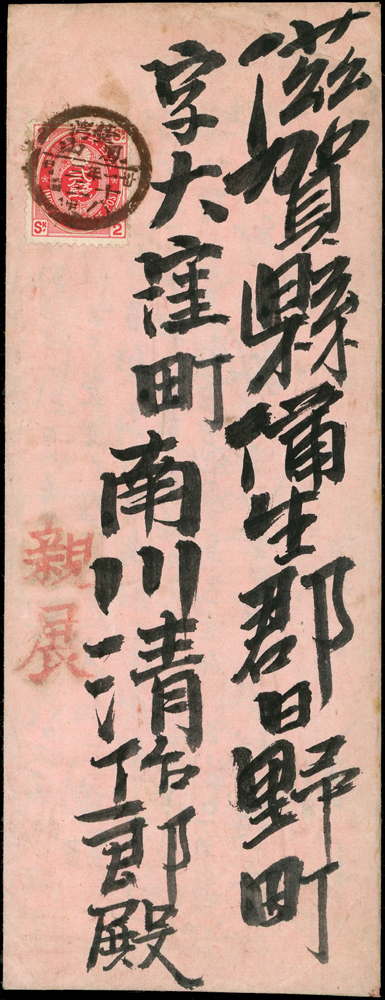 滋賀縣蒲生郡日野町
字大窪町
南川清治郎殿
親展
2
SN